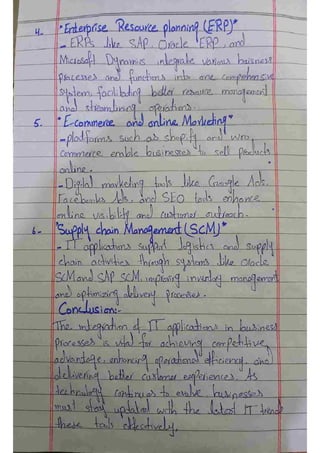 4. "Enterprise Resource planning (ERP)"
- ERPs like SAP, Oracle ERP, and
Microsoft Dynamics integrate various business
processes and functions into one comprehensive
system, facilitating better resource management
and streamlining operations.
5. "E-commerce and online Marketing"
- platforms such as shopify and woo,
commerce enable businesses to sell products
online.
- Digital marketing tools like Google Ads,
Facebooks Ads, and SEO tools enhance
online visibility and customer outreach.
6- "Supply chain Management (SCM)"
- IT applications support logistics and supply
chain activities through systems like Oracle
SCM and SAP SCM, improving inventory management
and optimizing delivery processes.
Conclusion:-
The integration of IT applications in business
processes is vital for achieving competitive
advantage, enhancing operational efficiency, and
delivering better customer experiences. As
technology continues to evolve, businesses
must stay updated with the latest IT trends
these tools effectively.